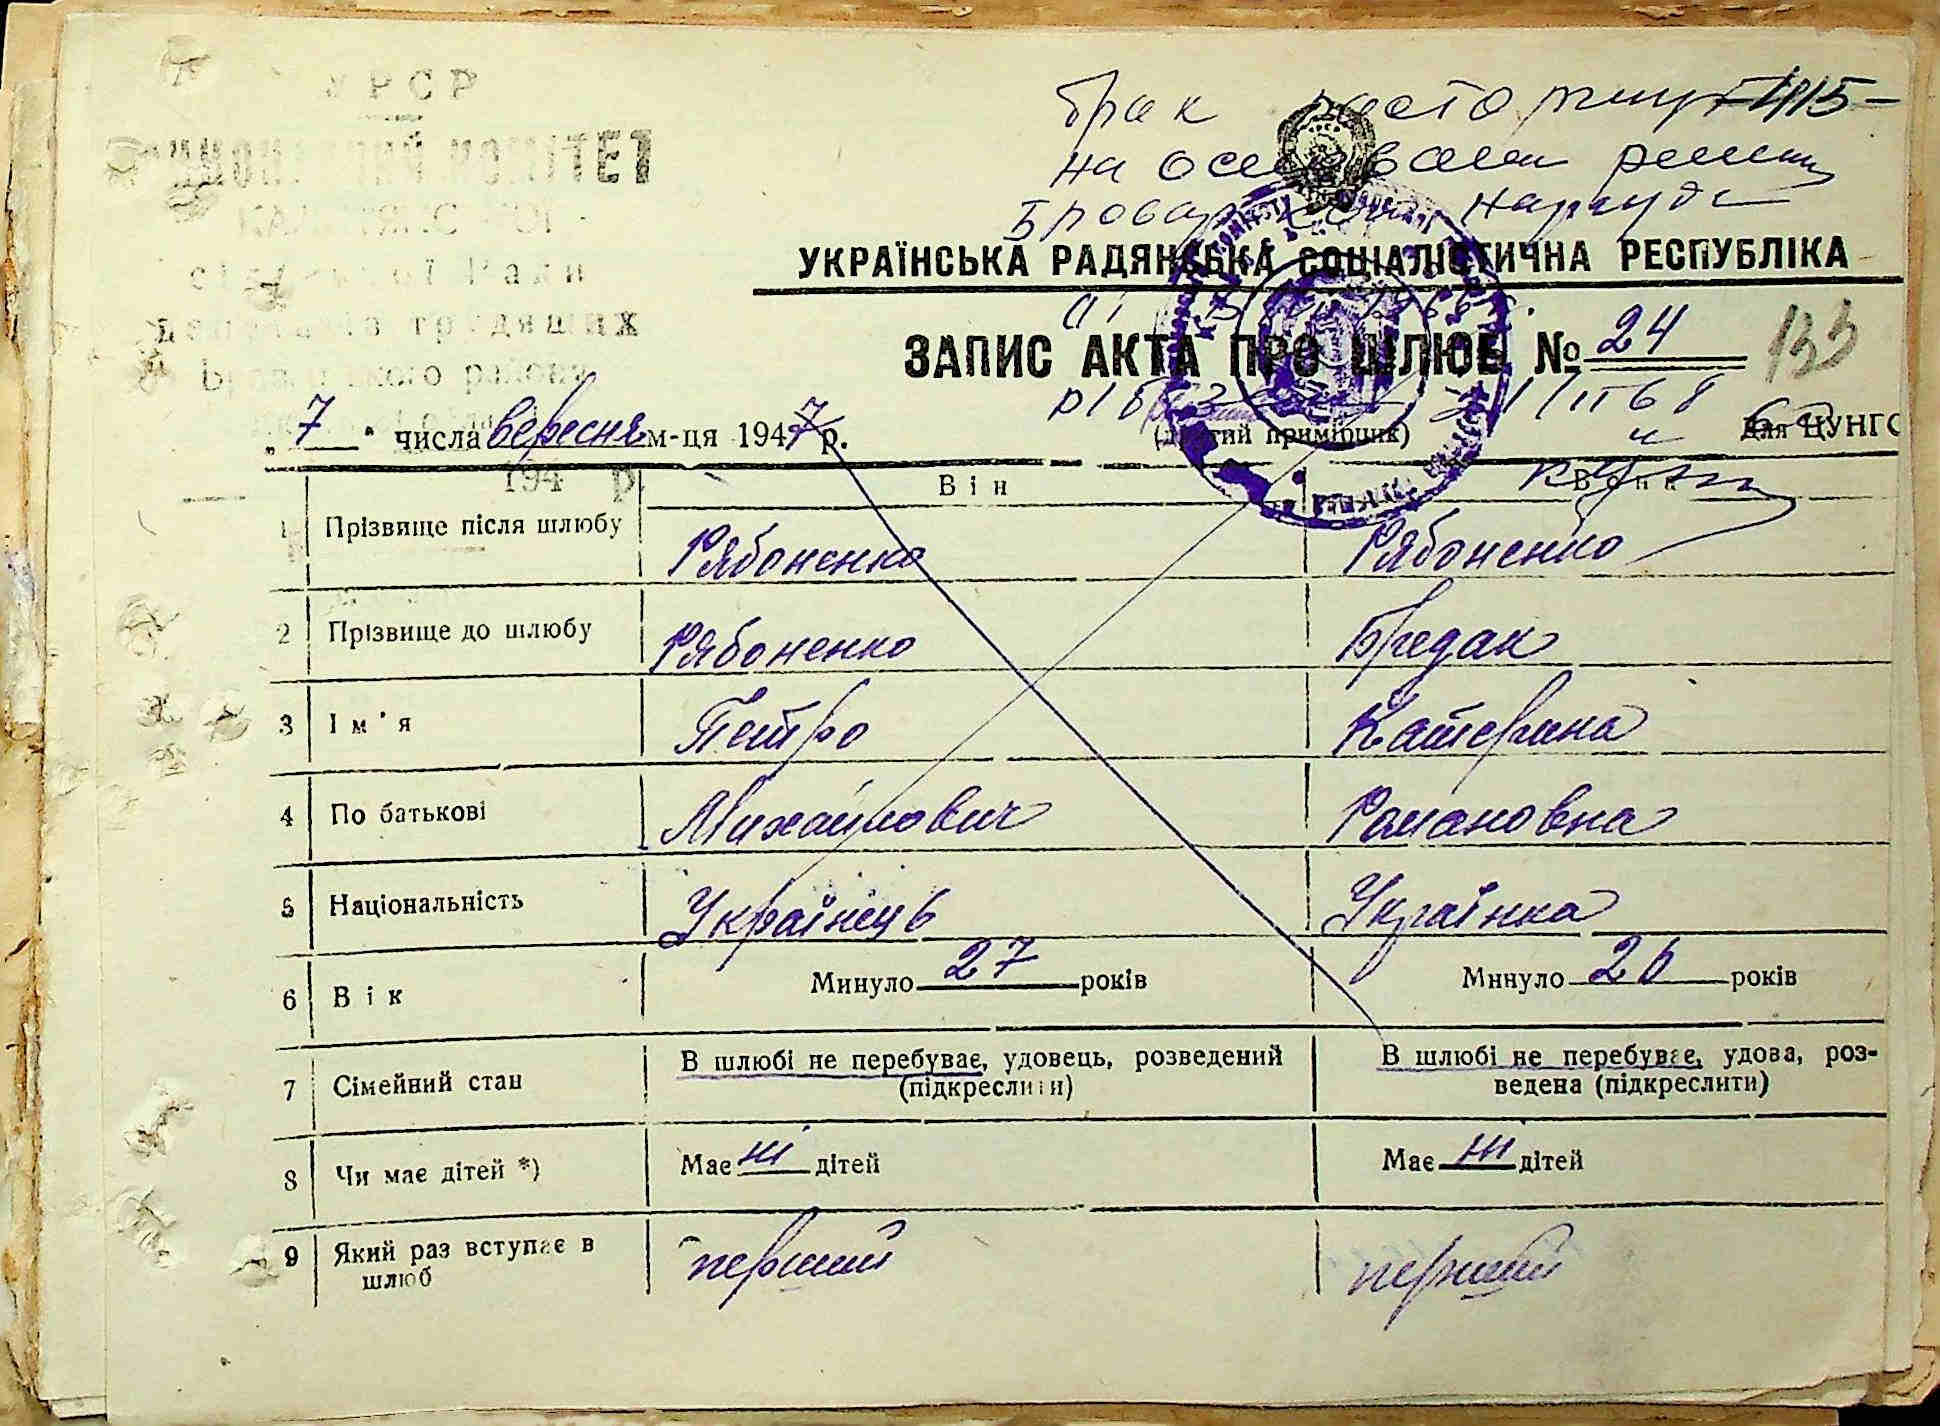 УРСР
КОМІТЕТ
Ради
трудящих
району
194 р.
брак расторгнут
на основании решения
Броварского нарсуда
УКРАЇНСЬКА РАДЯНСЬКА СОЦІАЛІСТИЧНА РЕСПУБЛІКА
ЗАПИС АКТА ПРО ШЛЮБ № 24
133
„ 7 " числа вересня м-ця 1947 р.
(другий примірник)
для ЦУНГС
Він
Вона
1 Прізвище після шлюбу Рябоненко Рябоненко
2 Прізвище до шлюбу Рябоненко Бредак
3 Ім'я Петро Катерина
4 По батькові Михайлович Романовна
5 Національність Українець Українка
6 Вік Минуло 27 років Минуло 26 років
7 Сімейний стан В шлюбі не перебуває, удовець, розведений В шлюбі не перебуває, удова, роз-
(підкреслити) ведена (підкреслити)
8 Чи має дітей *) Має ні дітей Має ні дітей
9 Який раз вступає в перший перший
шлюб